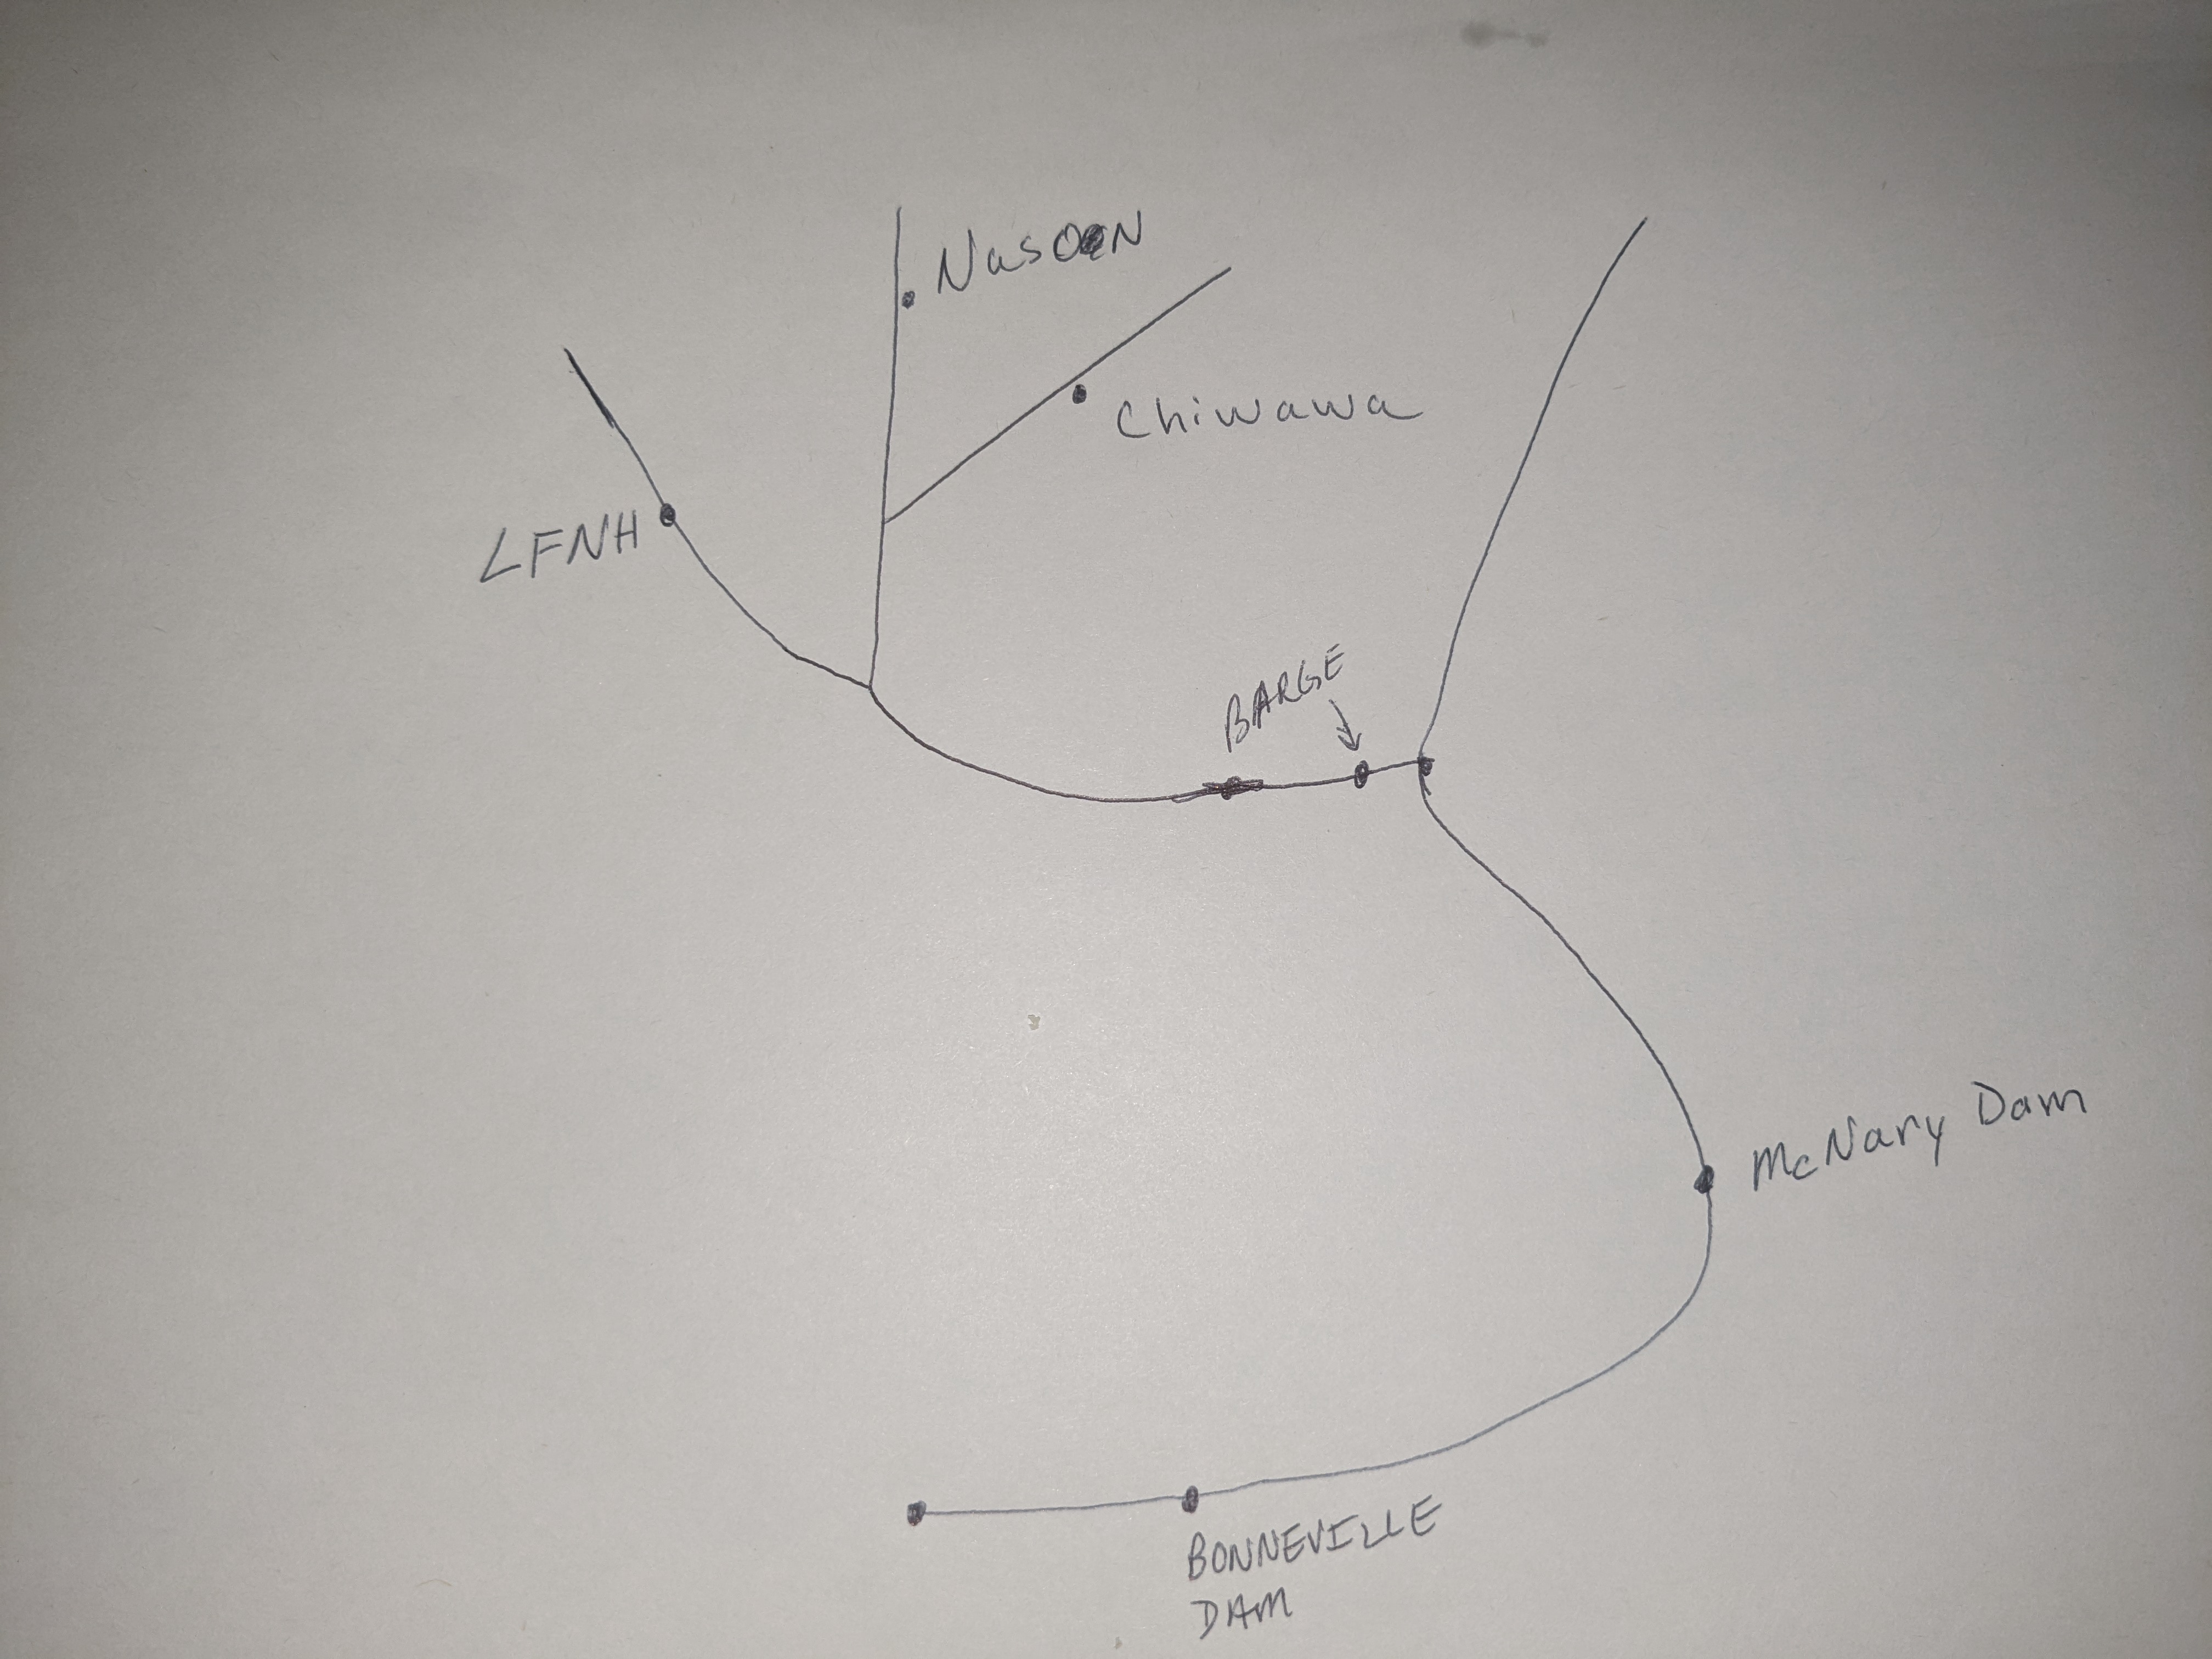 Nason
Chiwawa
LFNH
BARGE
McNary Dam
BONNEVILLE
DAM